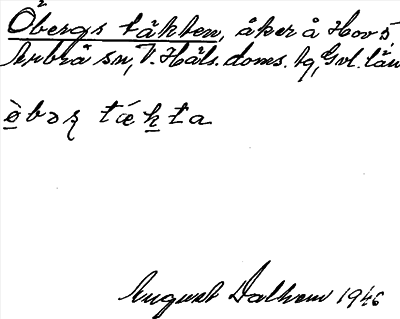 Öbergs täkten, åker å Hov 5
Arbrå sn, V. Häls. doms. tg, Gvl. län
òbəʂ tǽkta
August Dalhem 1946